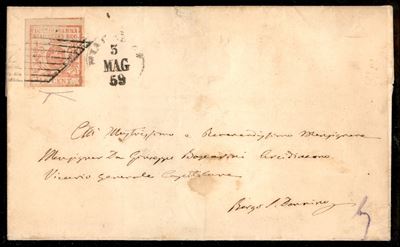 5
MAG
59
All' Illustrissimo e Reverendissimo Monsignore
Monsignor Don Giuseppe Boscarini Arcidiacono
Vicario generale Capitolare
Borgo S. Donnino